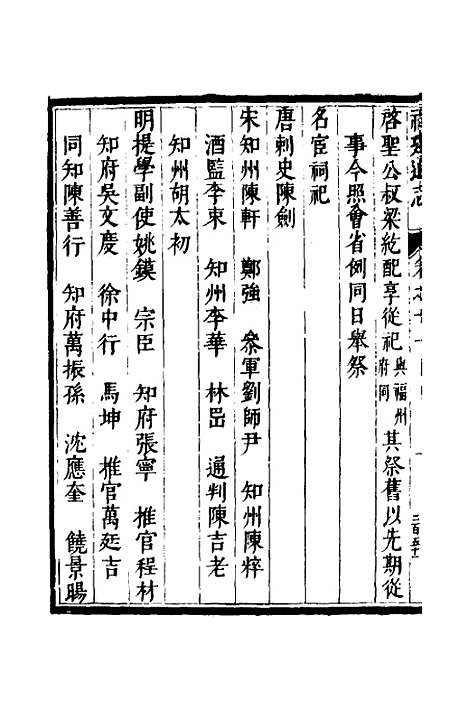 啓聖公叔梁紇配享從祀與福州府同其祭舊以先期從
事今照會省例同日舉祭
名宦祠祀
唐刺史陳劍
宋知州陳軒 鄭強 叅軍劉師尹 知州陳粹
酒監李東 知州李華 林嵒 通判陳吉老
知州胡太初
明提學副使姚鏌 宗臣 知府張寧 推官程材
知府吳文度 徐中行 馬坤 推官萬廷吉
同知陳善行 知府萬振孫 沈應奎 饒景暘